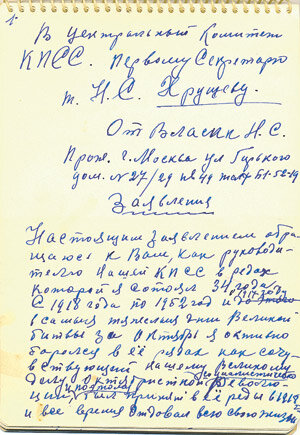 1
В Центральный Комитет
КПСС. Первому Секретарю
т. Н. С. Хрущеву.
От Власик Н. С.
Прож. г. Москва ул Горького
дом. № 27/29 кв 49
Заявления
Настоящим заявлением обра-
щаюсь к Вам, как руководи-
телю нашей КПСС в рядах
которой я состоял 34 года
С 1918 года по 1952 год и
в самые тяжелые дни Великой
битвы за Октябрь я активно
боролся в её рядах как сочу-
вствующий нашему Великому
делу Октябрьской Социалистической Револю-
ции, был принят в её ряды в 1918 г
и все время отдавал всю свою жизнь